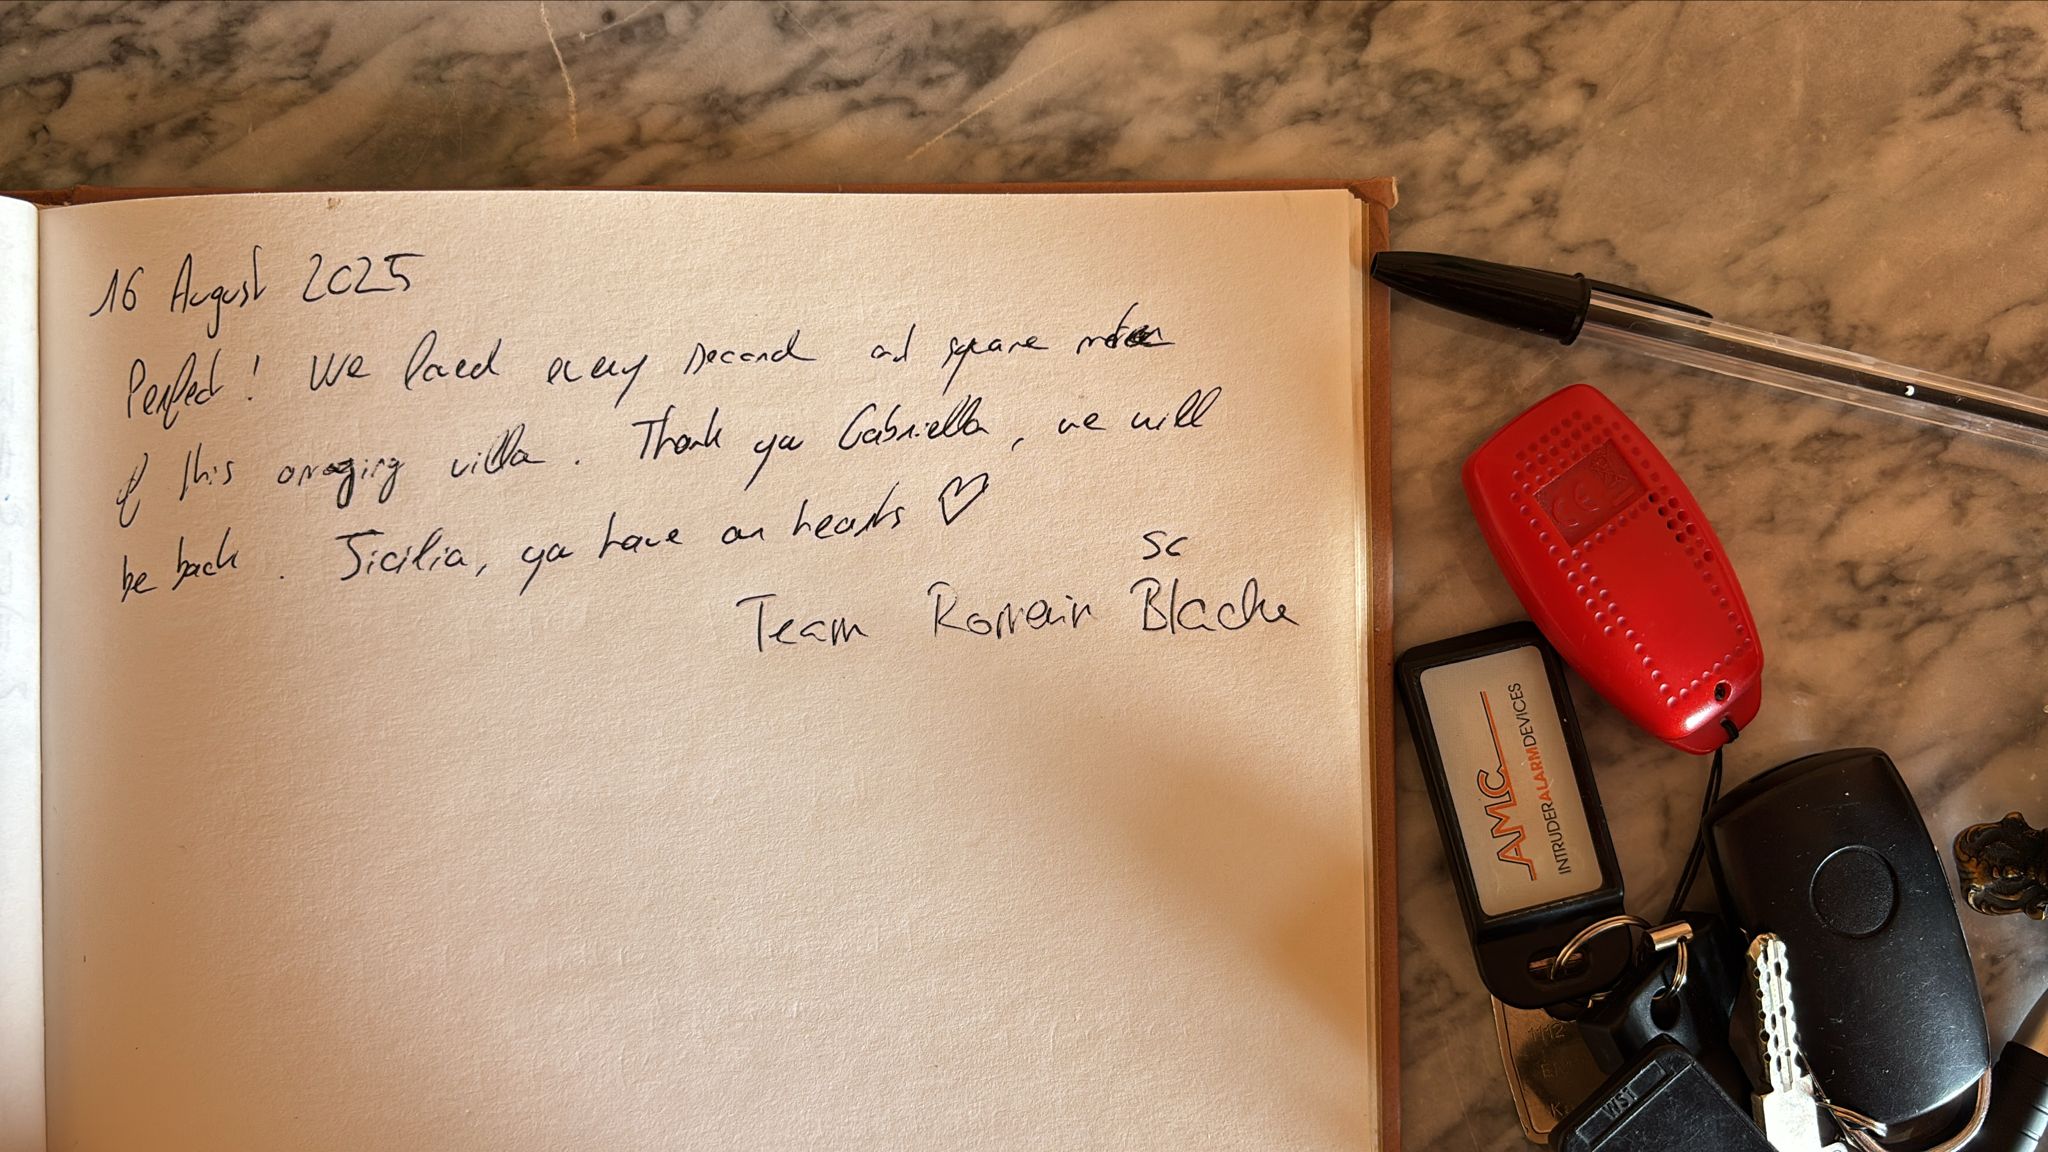 16 August 2025
Perfect! We loved every second and square meter
of this amazing villa. Thank you Gabriella, we will
be back. Sicilia, you have our hearts ♡
SC
Team Romain Blache
AMC
INTRUDERALARMDEVICES
CE